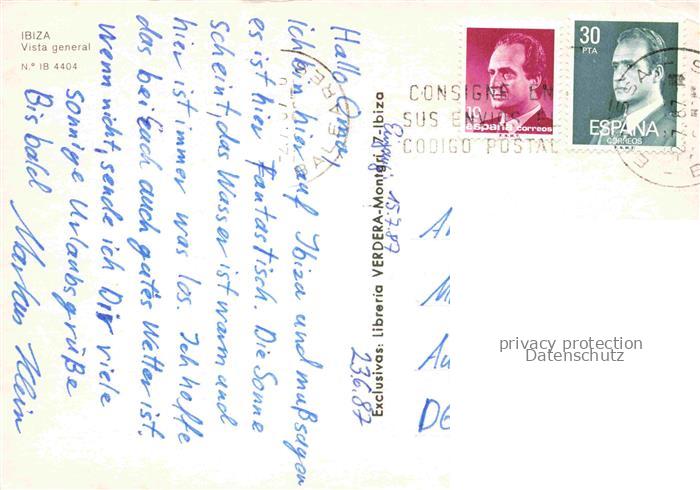 IBIZA
Vista general
N.º IB 4404
Hallo Oma,
ich bin hier auf Ibiza und muß sagen
es ist hier fantastisch. Die Sonne
scheint, das Wasser ist warm und
hier ist immer was los. Ich hoffe
das bei Euch auch gutes Wetter ist.
Wenn nicht, sende ich Dir viele
sonnige Urlaubsgrüße
Bis bald Markus Klein
23.6.87
15.7.87
Exclusivas: Librería VERDERA-Montgrí, 2-Ibiza
CONSIGNE EN
SUS ENVIOS
CODIGO POSTAL
españa correos
30
PTA
ESPAÑA
CORREOS
A
M
Au
DE
privacy protection
Datenschutz